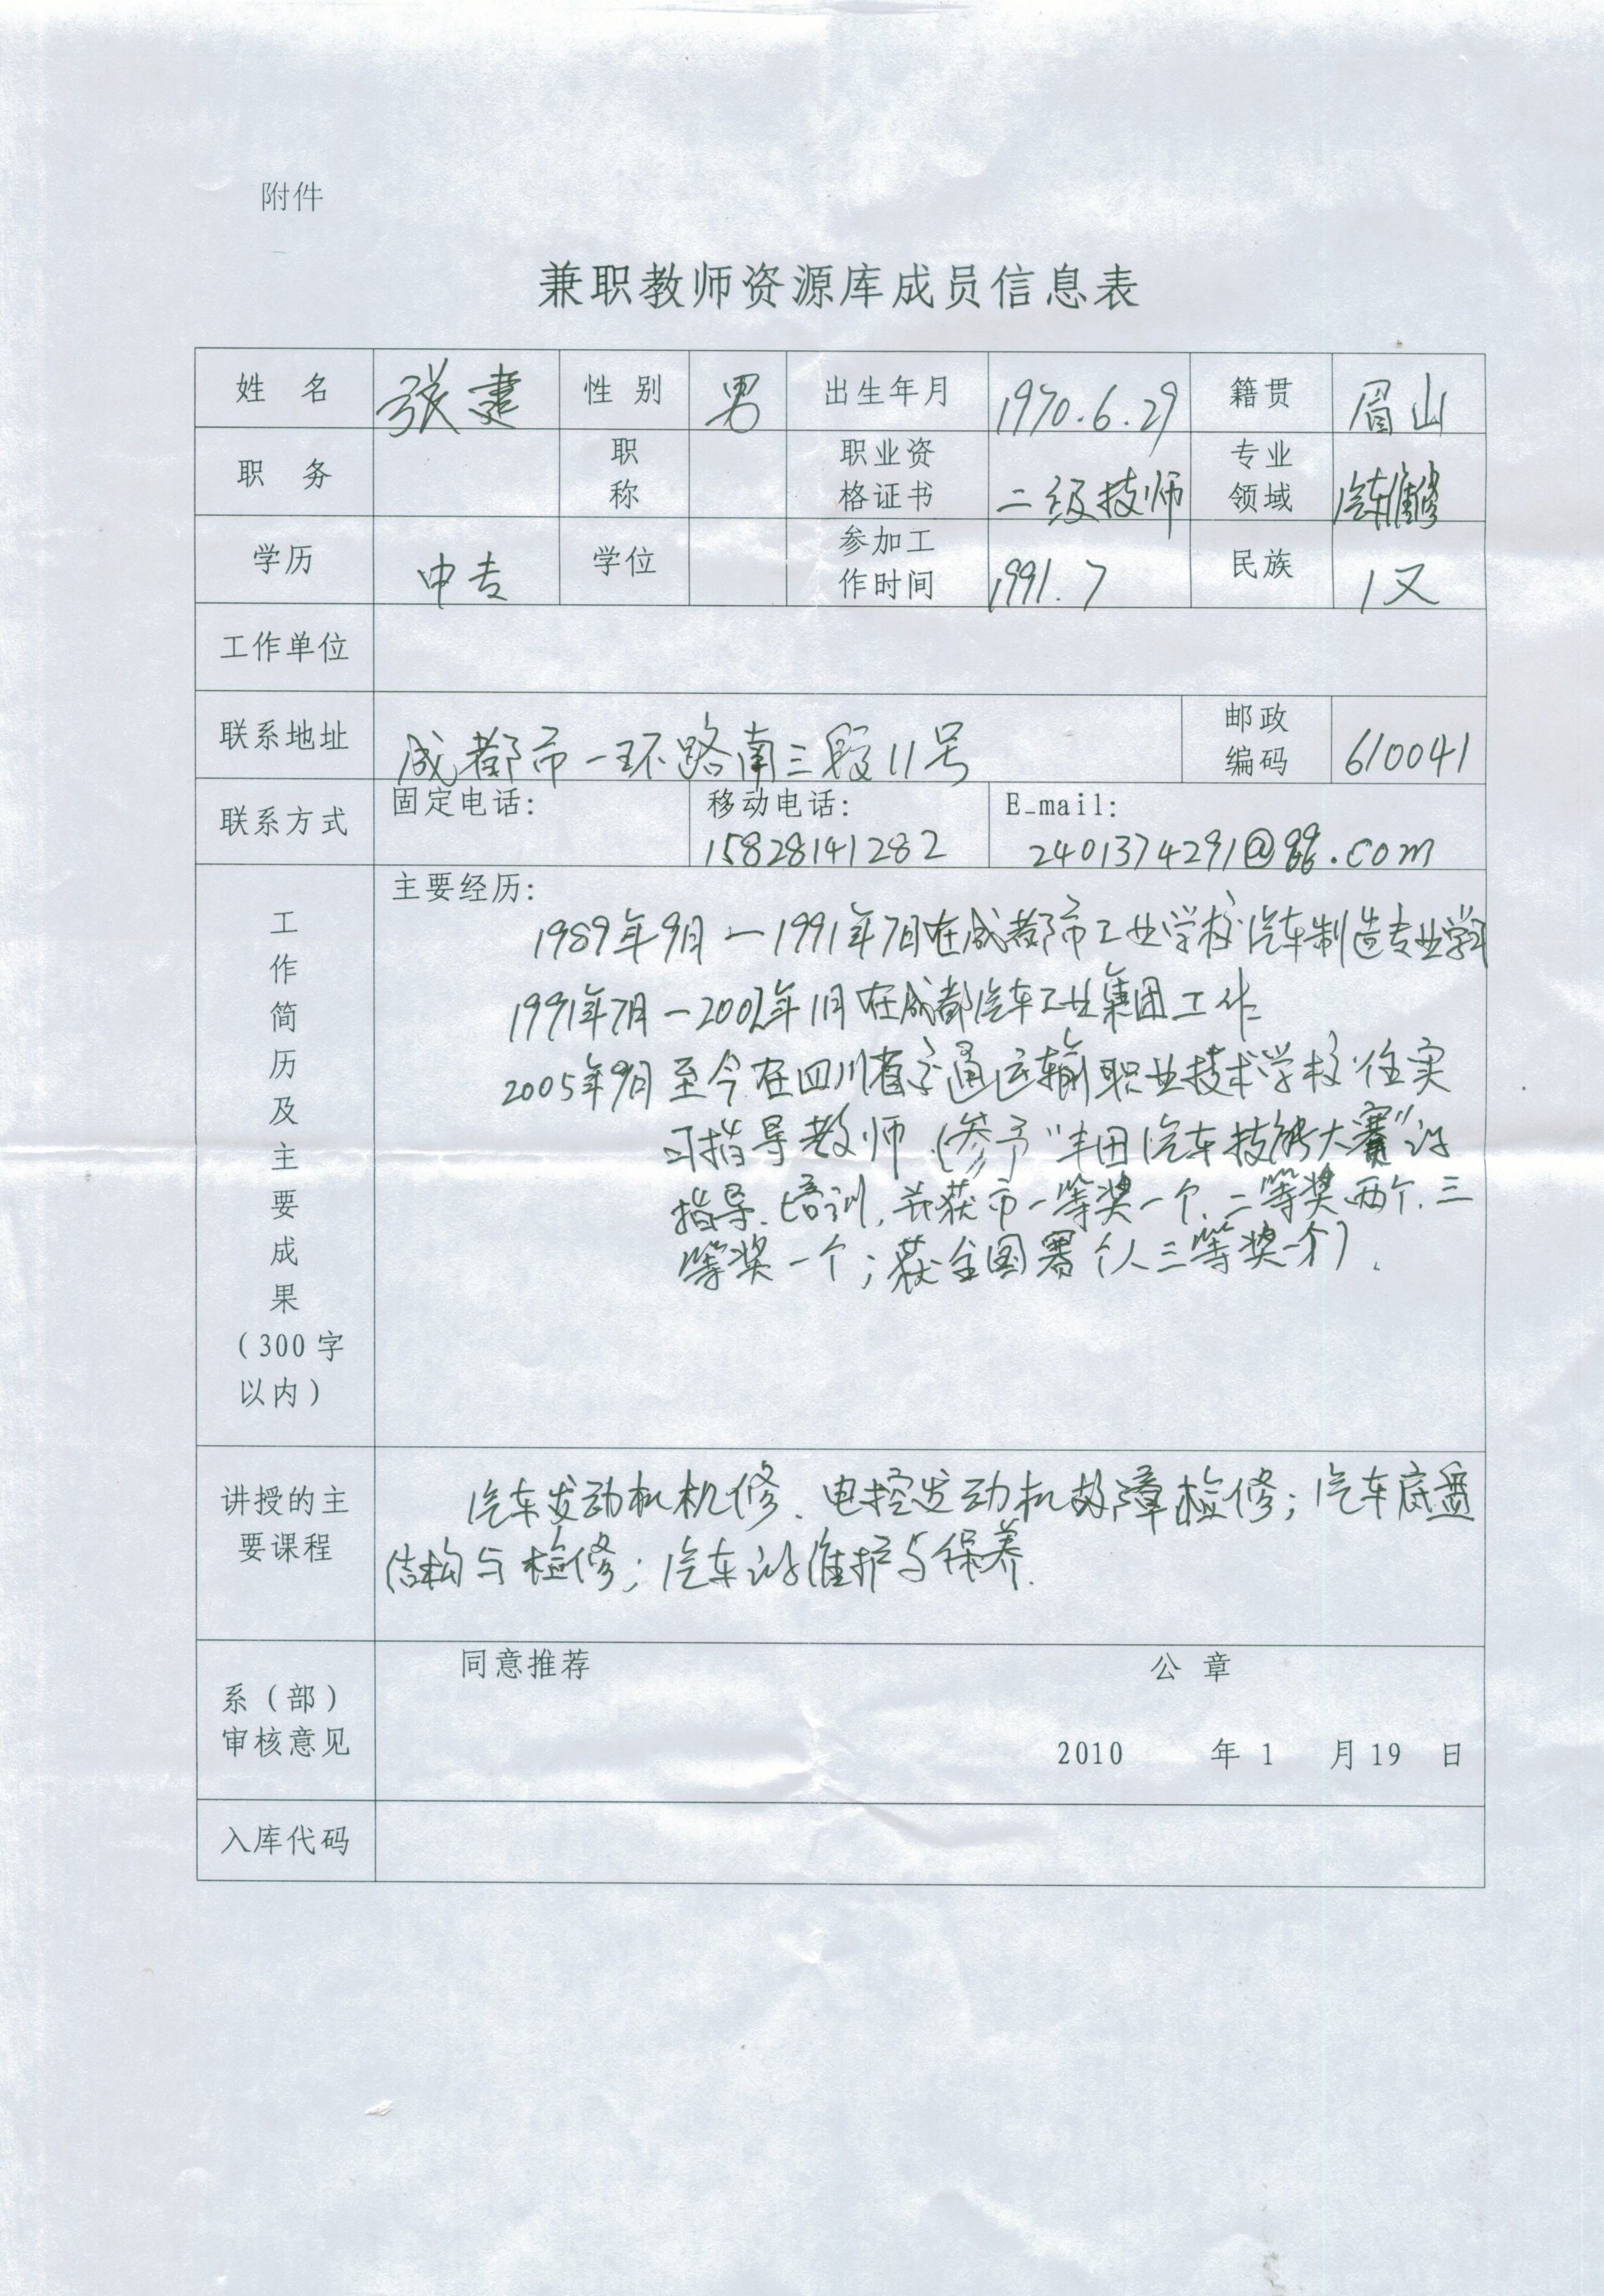 附件
兼职教师资源库成员信息表
姓 名 张 性别 男 出生年月 1970.6.29 籍贯 眉山
职 务 职称 职业资格证书 二级技师 专业领域 汽车维修
学历 中专 学位 参加工作时间 1991.7 民族 汉
工作单位
联系地址 成都市一环路南三段11号 邮政编码 610041
联系方式 固定电话: 移动电话: E_mail:
15828141282 2401374291@qq.com
工作简历及主要成果(300字以内) 主要经历:
1989年9月一1991年7月在成都市工业学校汽车制造专业学习
1991年7月一2002年1月在成都汽车工业集团工作
2005年9月至今在四川省交通运输职业技术学校任实
习指导教师(参予"丰田汽车技能大赛"的
指导、培训,并获市一等奖一个、二等奖两个、三
等奖一个;获全国赛个人三等奖一个)。
讲授的主要课程 汽车发动机机修、电控发动机故障检修;汽车底盘
结构与检修;汽车的维护与保养.
系(部)审核意见 同意推荐 公 章
2010 年 1 月 19 日
入库代码